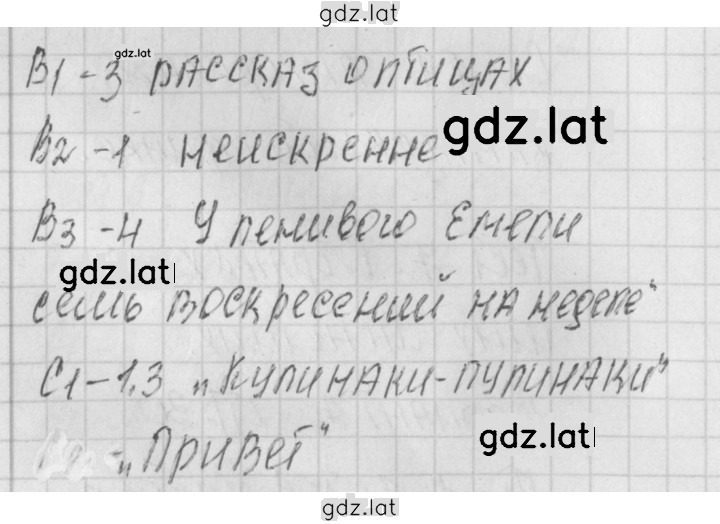 gdz.lat
gdz.lat
В1 - 3 рассказ о птицах
В2 - 1 неискренне
gdz.lat
В3 - 4 У ленивого Емели
gdz.lat
семь воскресений на неделе"
С1 - 1,3 „Кулинаки-пулинаки"
gdz.lat
- „Привет"
gdz.lat